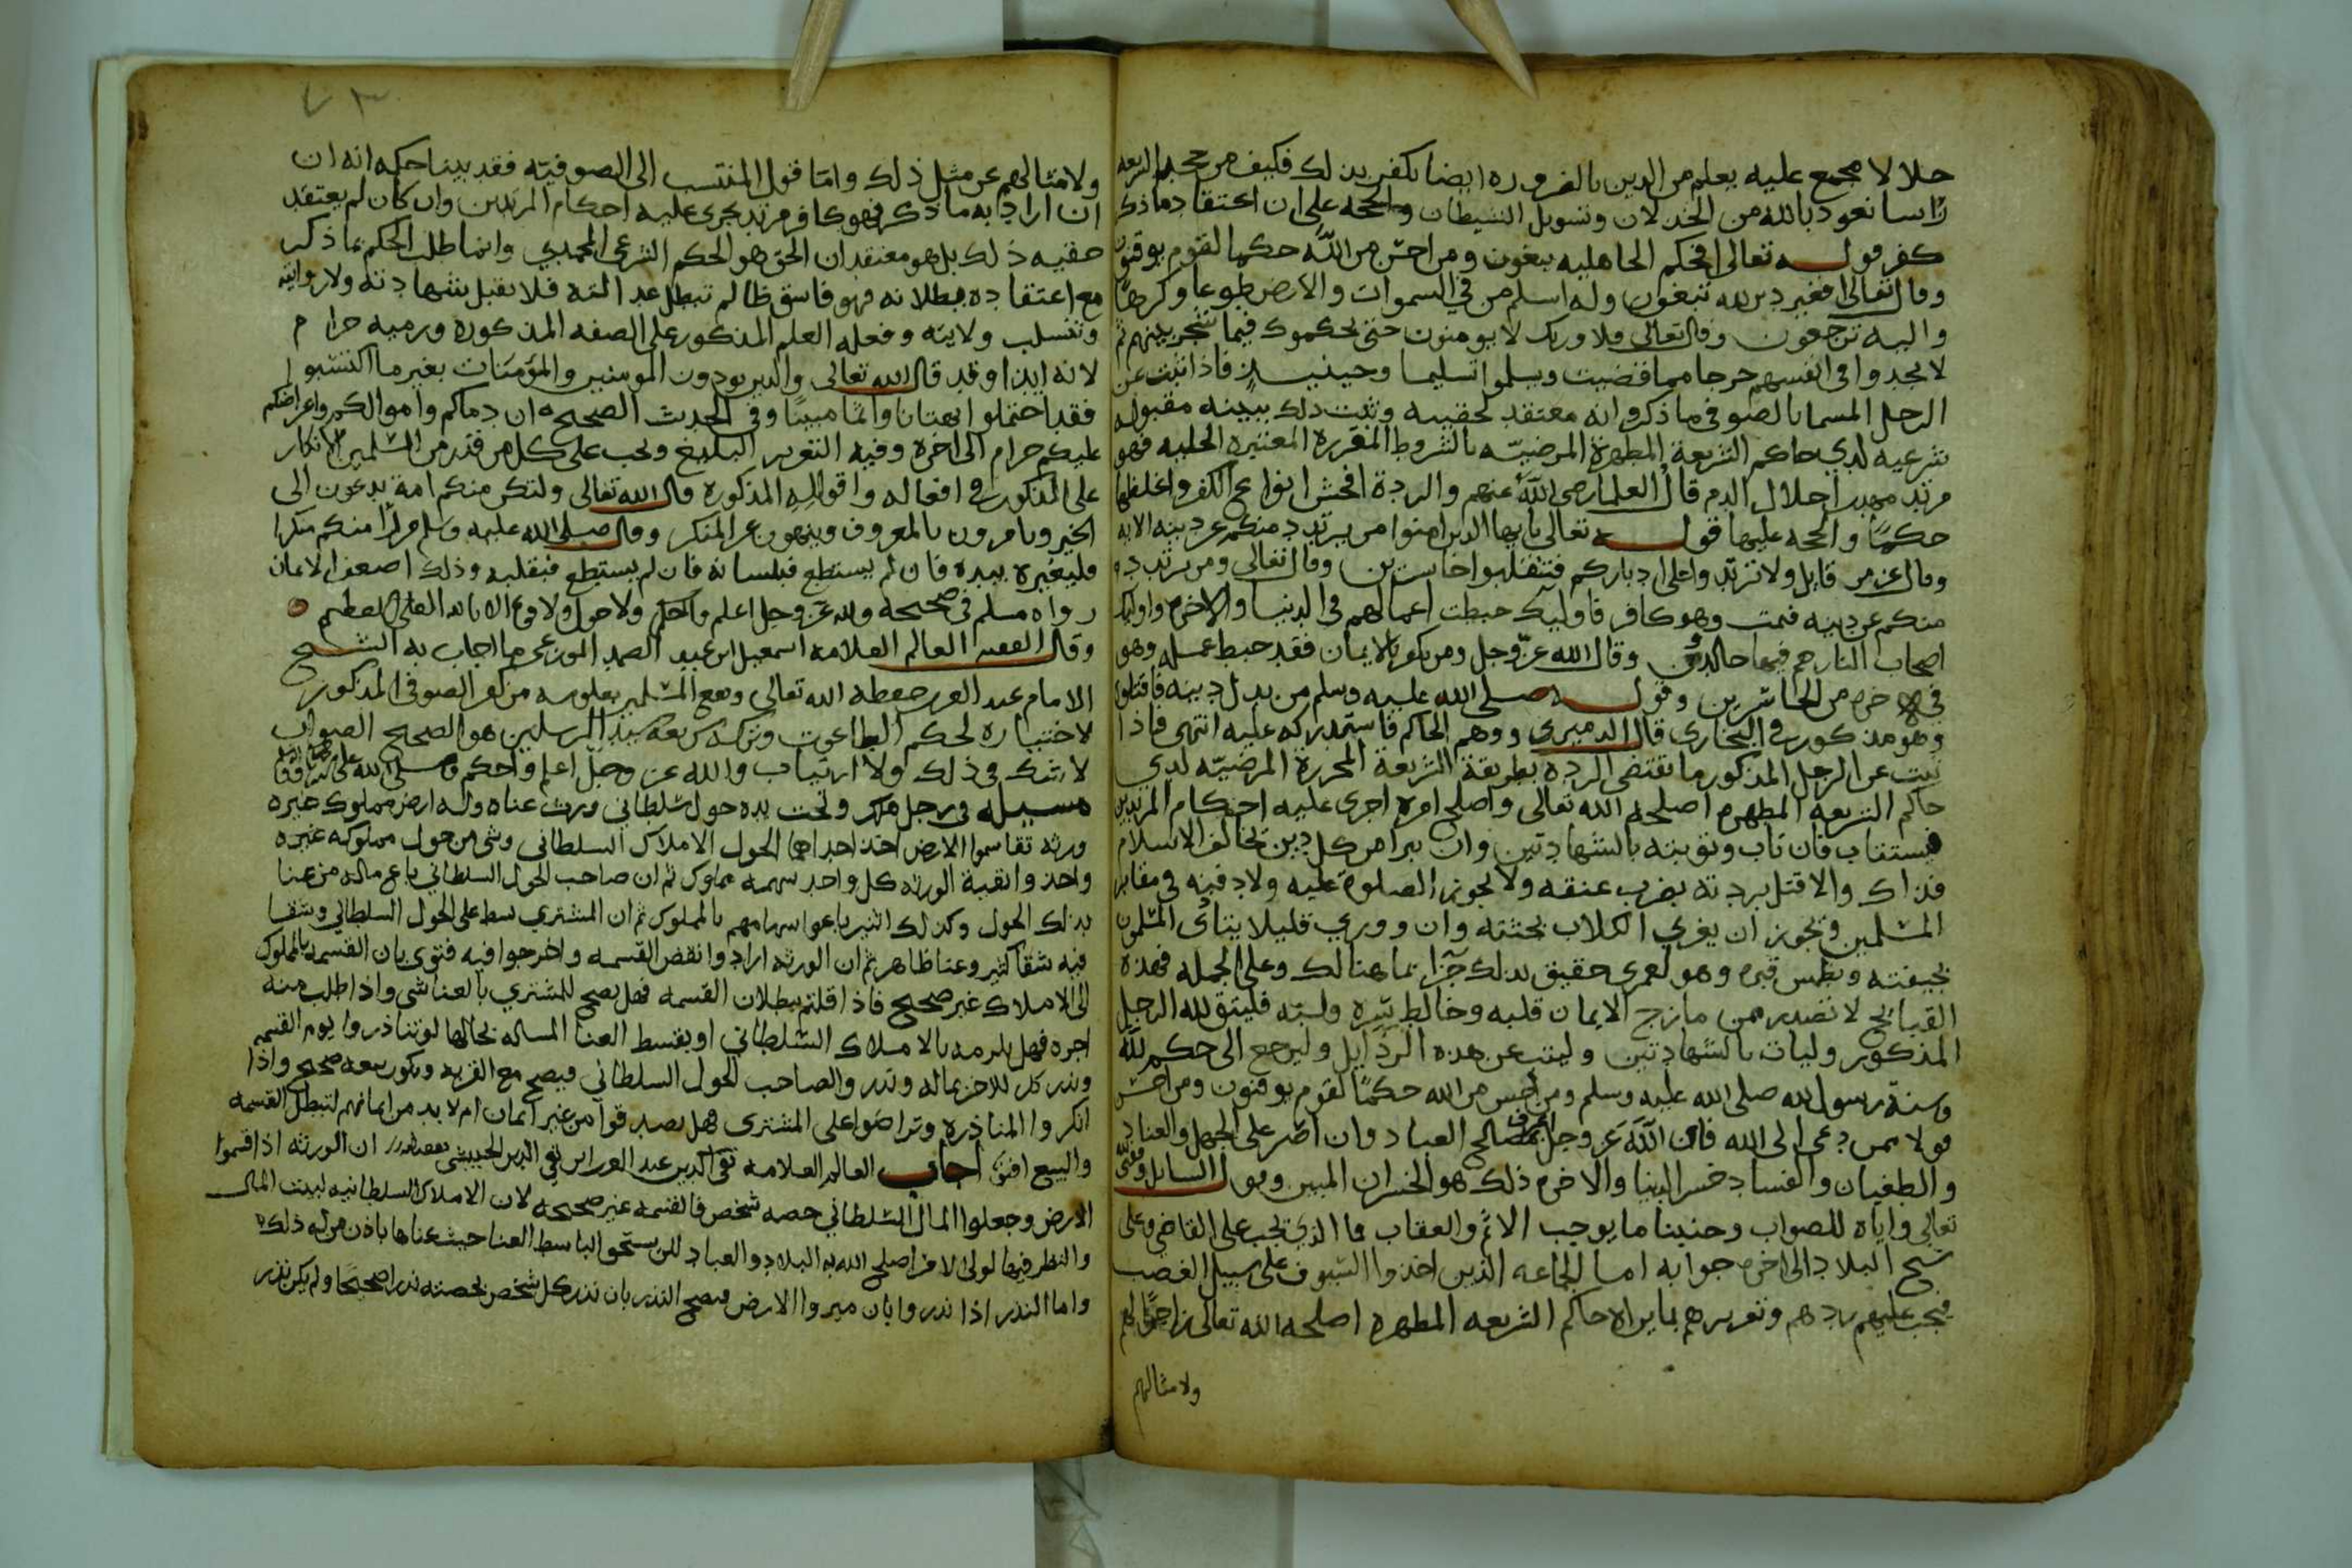 حلالا مجمع عليه يعلم من الدين بالضروره ايضا يكفر بذلك فكيف من جحد الشريعه
راسا نعوذ بالله من الخذلان وتسويل الشيطان والحجه على ان اعتقاد ما ذكر
كفر قوله تعالى افحكم الجاهليه يبغون ومن احسن من الله حكما لقوم يوقنون
وقال تعالى افغير دين الله تبغون وله اسلم من في السموات والارض طوعا وكرها
واليه ترجعون وقال تعالى فلا وربك لا يومنون حتى يحكموك فيما شجر بينهم ثم
لا يجدوا في انفسهم حرجا مما قضيت ويسلموا تسليما وحينيذ فاذا ثبت عن
الرجل المسما بالصوفي ما ذكر وانه معتقد لحقيه وثبت ذلك ببينه مقبوله
شرعيه لدي حاكم الشريعة المطهرة المرضيّه بالشروط المقررة المعتبره الجليه فهو
مرتد مهدر احلال الدم قال العلما رضي الله عنهم والردة افحش انواع الكفر واغلظها
حكمًا والحجه عليها قوله تعالى يايها الذين امنوا من يرتدد منكم عن دينه الايه
وقال عز من قايل ولا ترتدوا على ادباركم فتنقلبوا خاسرين وقال تعالى ومن يرتدد
منكم عن دينه فيمت وهو كافر فاوليك حبطت اعمالهم في الدنيا والاخره واوليك
اصحاب النار هم فيها خالدون وقال الله عزّ وجل ومن يكفر بالايمان فقد حبط عمله وهو
في الاخره من الخاسرين وقوله صلى الله عليه وسلم من بدل دينه فاقتلوه
وهو مذكور في البخاري قال الدميري ووهم الحاكم فاستدركه عليه انتهى فاذا
ثبت عن الرجل المذكور ما يقتضي الرده بطريقة الشريعة المحررة المرضيّه لدي
حاكم الشريعه المطهره اصلحه الله تعالى واصلح امره اجرى عليه احكام المرتدين
فيستتاب فان تاب وتوبته بالشهادتين وان يبرا من كل دين يخالف الاسلام
فذاك والا قتل بردته بضرب عنقه ولا يجوز الصلوة عليه ولا دفنه في مقابر
المسلمين ويجوز ان يغري الكلاب بجثته وان ووري قليلا يتاذى المسلمون
بجيفته ويطمس قبره وهو لعمري حقيق بذلك جزآ بما هنالك وعلى الجمله فهذه
القبايح لا تصدر ممن مازج الايمان قلبه وخالط سره ولبّه فليتق الله الرجل
المذكور وليات بالشهادتين وليتب عن هذه الرذايل وليرجع الى حكم الله
وسنة رسول الله صلى الله عليه وسلم ومن احسن من الله حكمًا لقوم يوقنون ومن احسن
قولا ممن دعى الى الله فان الله عز وجل مصالح العباد وان اصر على الجهل والعناد
والطغيان والفساد خسر الدنيا والاخره ذلك هو الخسران المبين وقول السايل وفقه
تعالى واياه للصواب وجنبنا ما يوجب الاثم والعقاب فما الذي يجب على القاضي وعلى
شيخ البلاد الى اخره جوابه اما الجماعه الذين اخذوا السيوف على سبيل الغصب
فيجب عليهم ردهم وتعزيرهم بما يراه حاكم الشريعه المطهره اصلحه الله تعالى زاجرًا لهم
ولامثالهم
٧٣
ولامثالهم عن مثل ذلك واما قول المنتسب الى الصوفيّه فقد بينا حكمه انه ان
ان اراد به ما ذكر فهو كافر مرتد يجري عليه احكام المرتدين وان كان لم يعتقد
حقيه ذلك بل هو معتقد ان الحق هو الحكم الشرعي المحمدي وانما طلب الحكم بما ذكر
مع اعتقاده ببطلانه فهو فاسق ظالم تبطل عدالته فلا يقبل شهادته ولا روايته
وتنسلب ولايته وفعله العلم المذكور على الصفه المذكوره ورميه حرام
لانه ايذا وقد قال الله تعالى والذين يوذون المومنين والمؤمنات بغير ما اكتسبوا
فقد احتملوا بهتانا واثما مبينا وفي الحديث الصحيح ان دماكم واموالكم واعراضكم
عليكم حرام الى اخره وفيه التعزير البليغ ويجب على كل من قدر من المسلمين الانكار
على المذكور في افعاله واقواله المذكورة قال الله تعالى ولتكن منكم امة يدعون الى
الخير ويامرون بالمعروف وينهون عن المنكر وقال صلى الله عليه وسلم من راى منكم منكرا
فليغيره بيده فان لم يستطع فبلسانه فان لم يستطع فبقلبه وذلك اضعف الايمان
رواه مسلم في صحيحه والله عز وجل اعلم واحكم ولا حول ولا قوة الا بالله العلي العظيم
وقال الفقيه العالم العلامه اسمعيل ابن عبد الصمد الموزعي ما اجاب به الشيخ
الامام عبد العزيز حفظه الله تعالى ونفع المسلمين بعلومه من كفر الصوفي المذكور
لاختياره لحكم الطاغوت وتركه شريعة سيد المرسلين هو الصحيح الصواب
لا شك في ذلك ولا ارتياب والله عز وجل اعلم واحكم
مسيله في رجل وتحت يده حول سلطاني ورث عناه وله ارض مملوك غيره
ورثه تقاسموا الارض اخذ احداهما الحول الاملاك السلطاني وشي من حول مملوكه غيره
واخذوا بقية الورثه كل واحد سهمه مملوك ثم ان صاحب الحول السلطاني باع ماله من عنا
بذلك الحول وكذلك اثنين باعوا سهامهم بالمملوك ثم ان المشتري بسط على الحول السلطاني وشقا
فيه شقا كثير وعنا ظاهر ثم ان الورثه ارادوا نقض القسمه واخرجوا فيه فتوى بان القسمه بالمملوك
الى الاملاك غير صحيح فاذا قلتم ببطلان القسمه فهل يصح للمشتري بالعنا شي واذا طلب منه
اجره فهل يلزمه بالاملاك السلطاني او يقسط العنا المساله بحالها لو تناذروا يوم القسمه
ونذر كل للاخر بماله ونذروا لصاحب الحول السلطاني فيصح مع القربه ويكون بيعه صحيح واذا
انكروا المناذره وتراضوا على المشتري هل يصدقوا من غير ايمان ام لا بد من ايمانهم لتبطل القسمه
والبيع افتونا اجاب العالم العلامه تقي الدين عبد العزيز ابن تقي الدين الحبيشي ان الورثه اذا اقسموا
الارض وجعلوا المال السلطاني حصه شخص فالقسمه غير صحيحه لان الاملاك السلطانيه لبيت المال
والنظر فيها لولي الامر اصلح الله به البلاد والعباد لكن يستحق الباسط العنا حيث عناها باذن من له ذلك
واما النذر اذا نذروا بان ميروا الارض فيصح النذر بان نذر كل شخص بحصته نذرا صحيحًا ولم يكن نذر